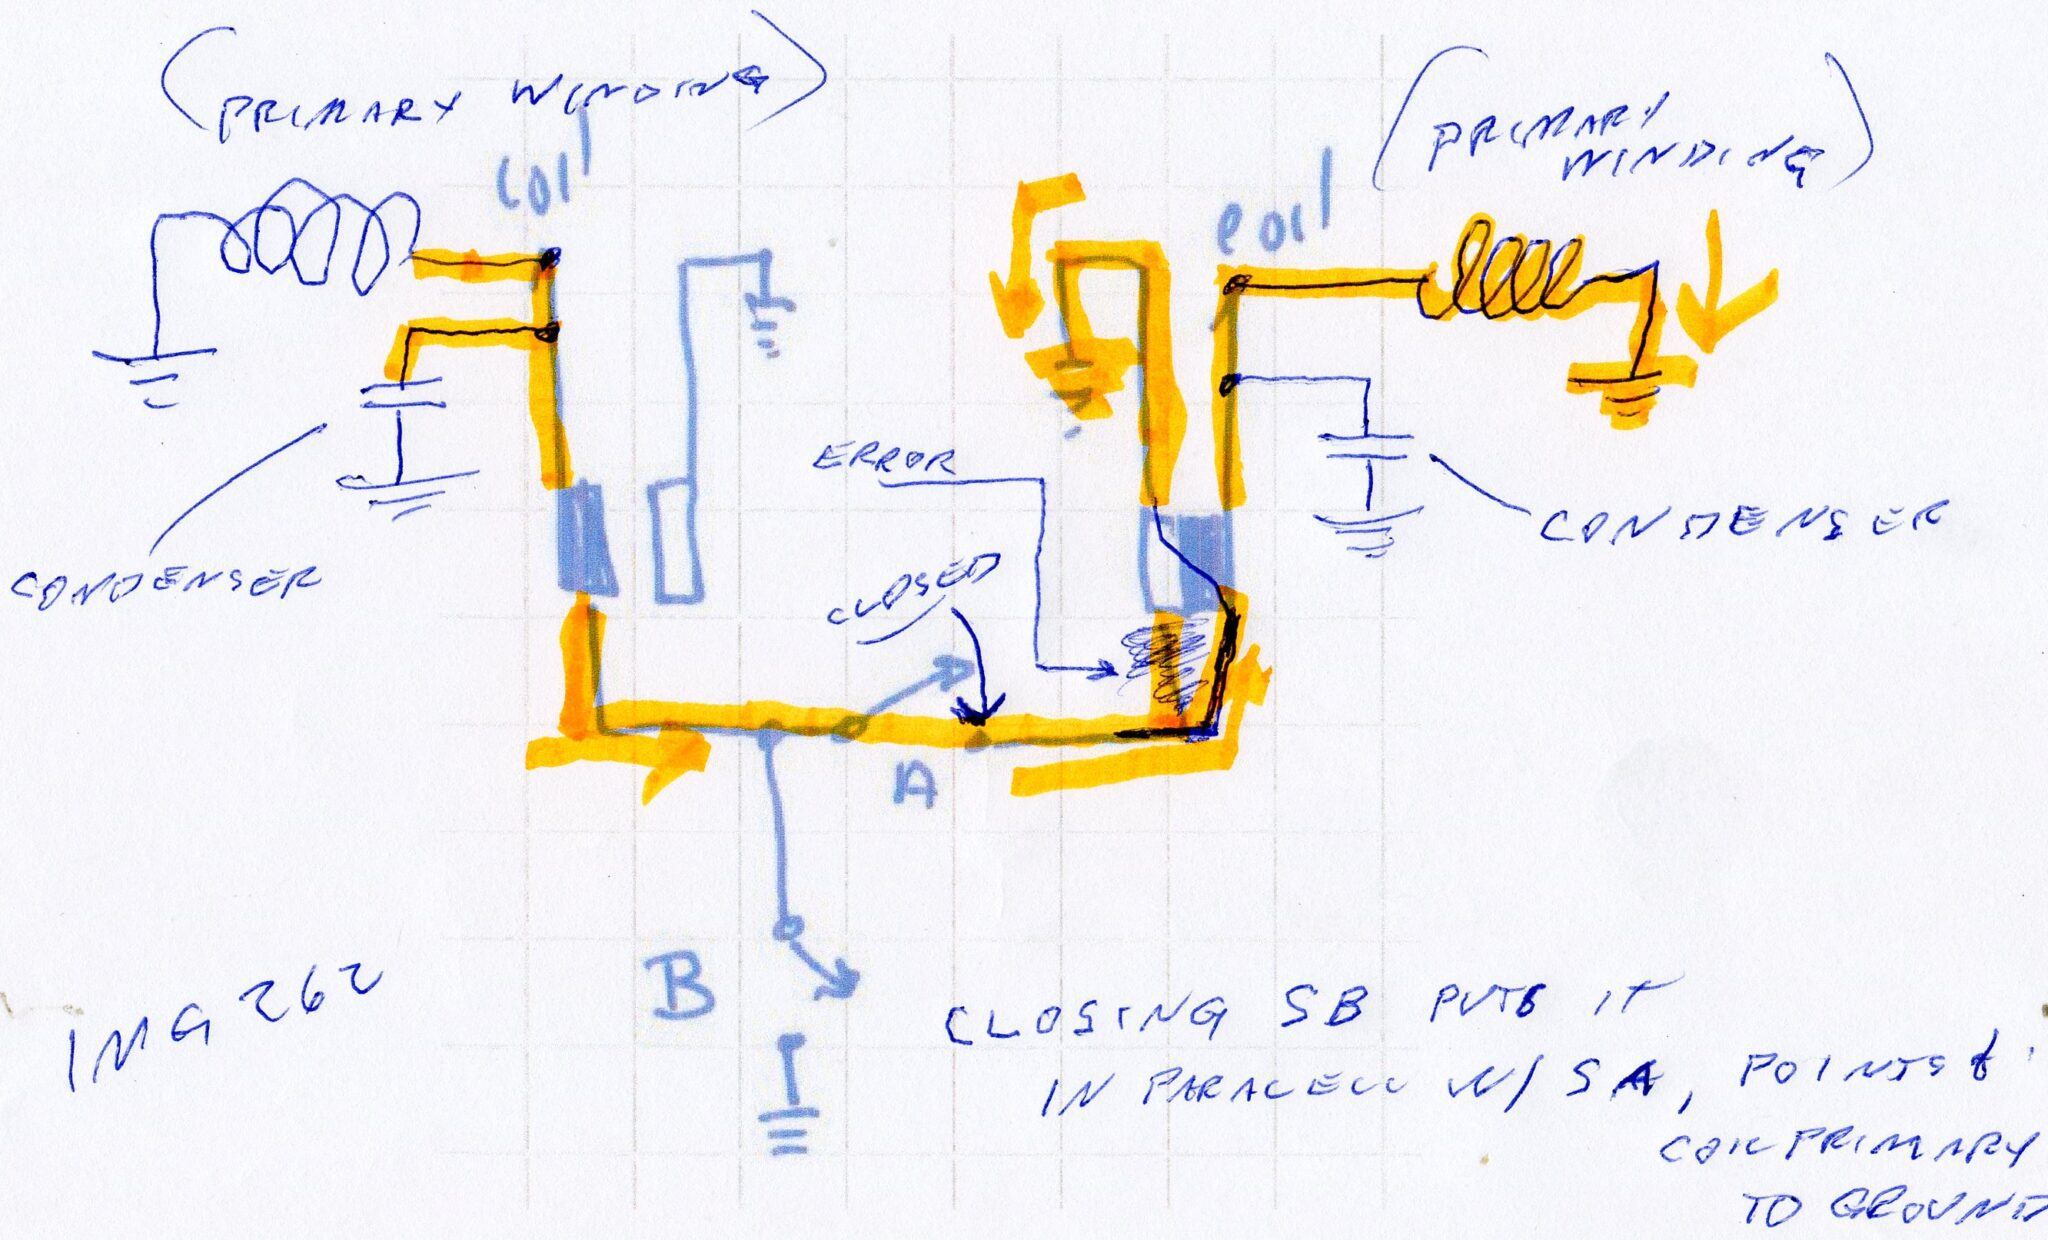 (PRIMARY WINDING)
(PRIMARY
WINDING)
COIl
COIl
ERROR
CLOSED
CONDENSER
CONDENSER
A
B
IMG 262
CLOSING SB PUTS IT
IN PARACELL W/ SA, POINTS &
COIL PRIMARY
TO GROUND